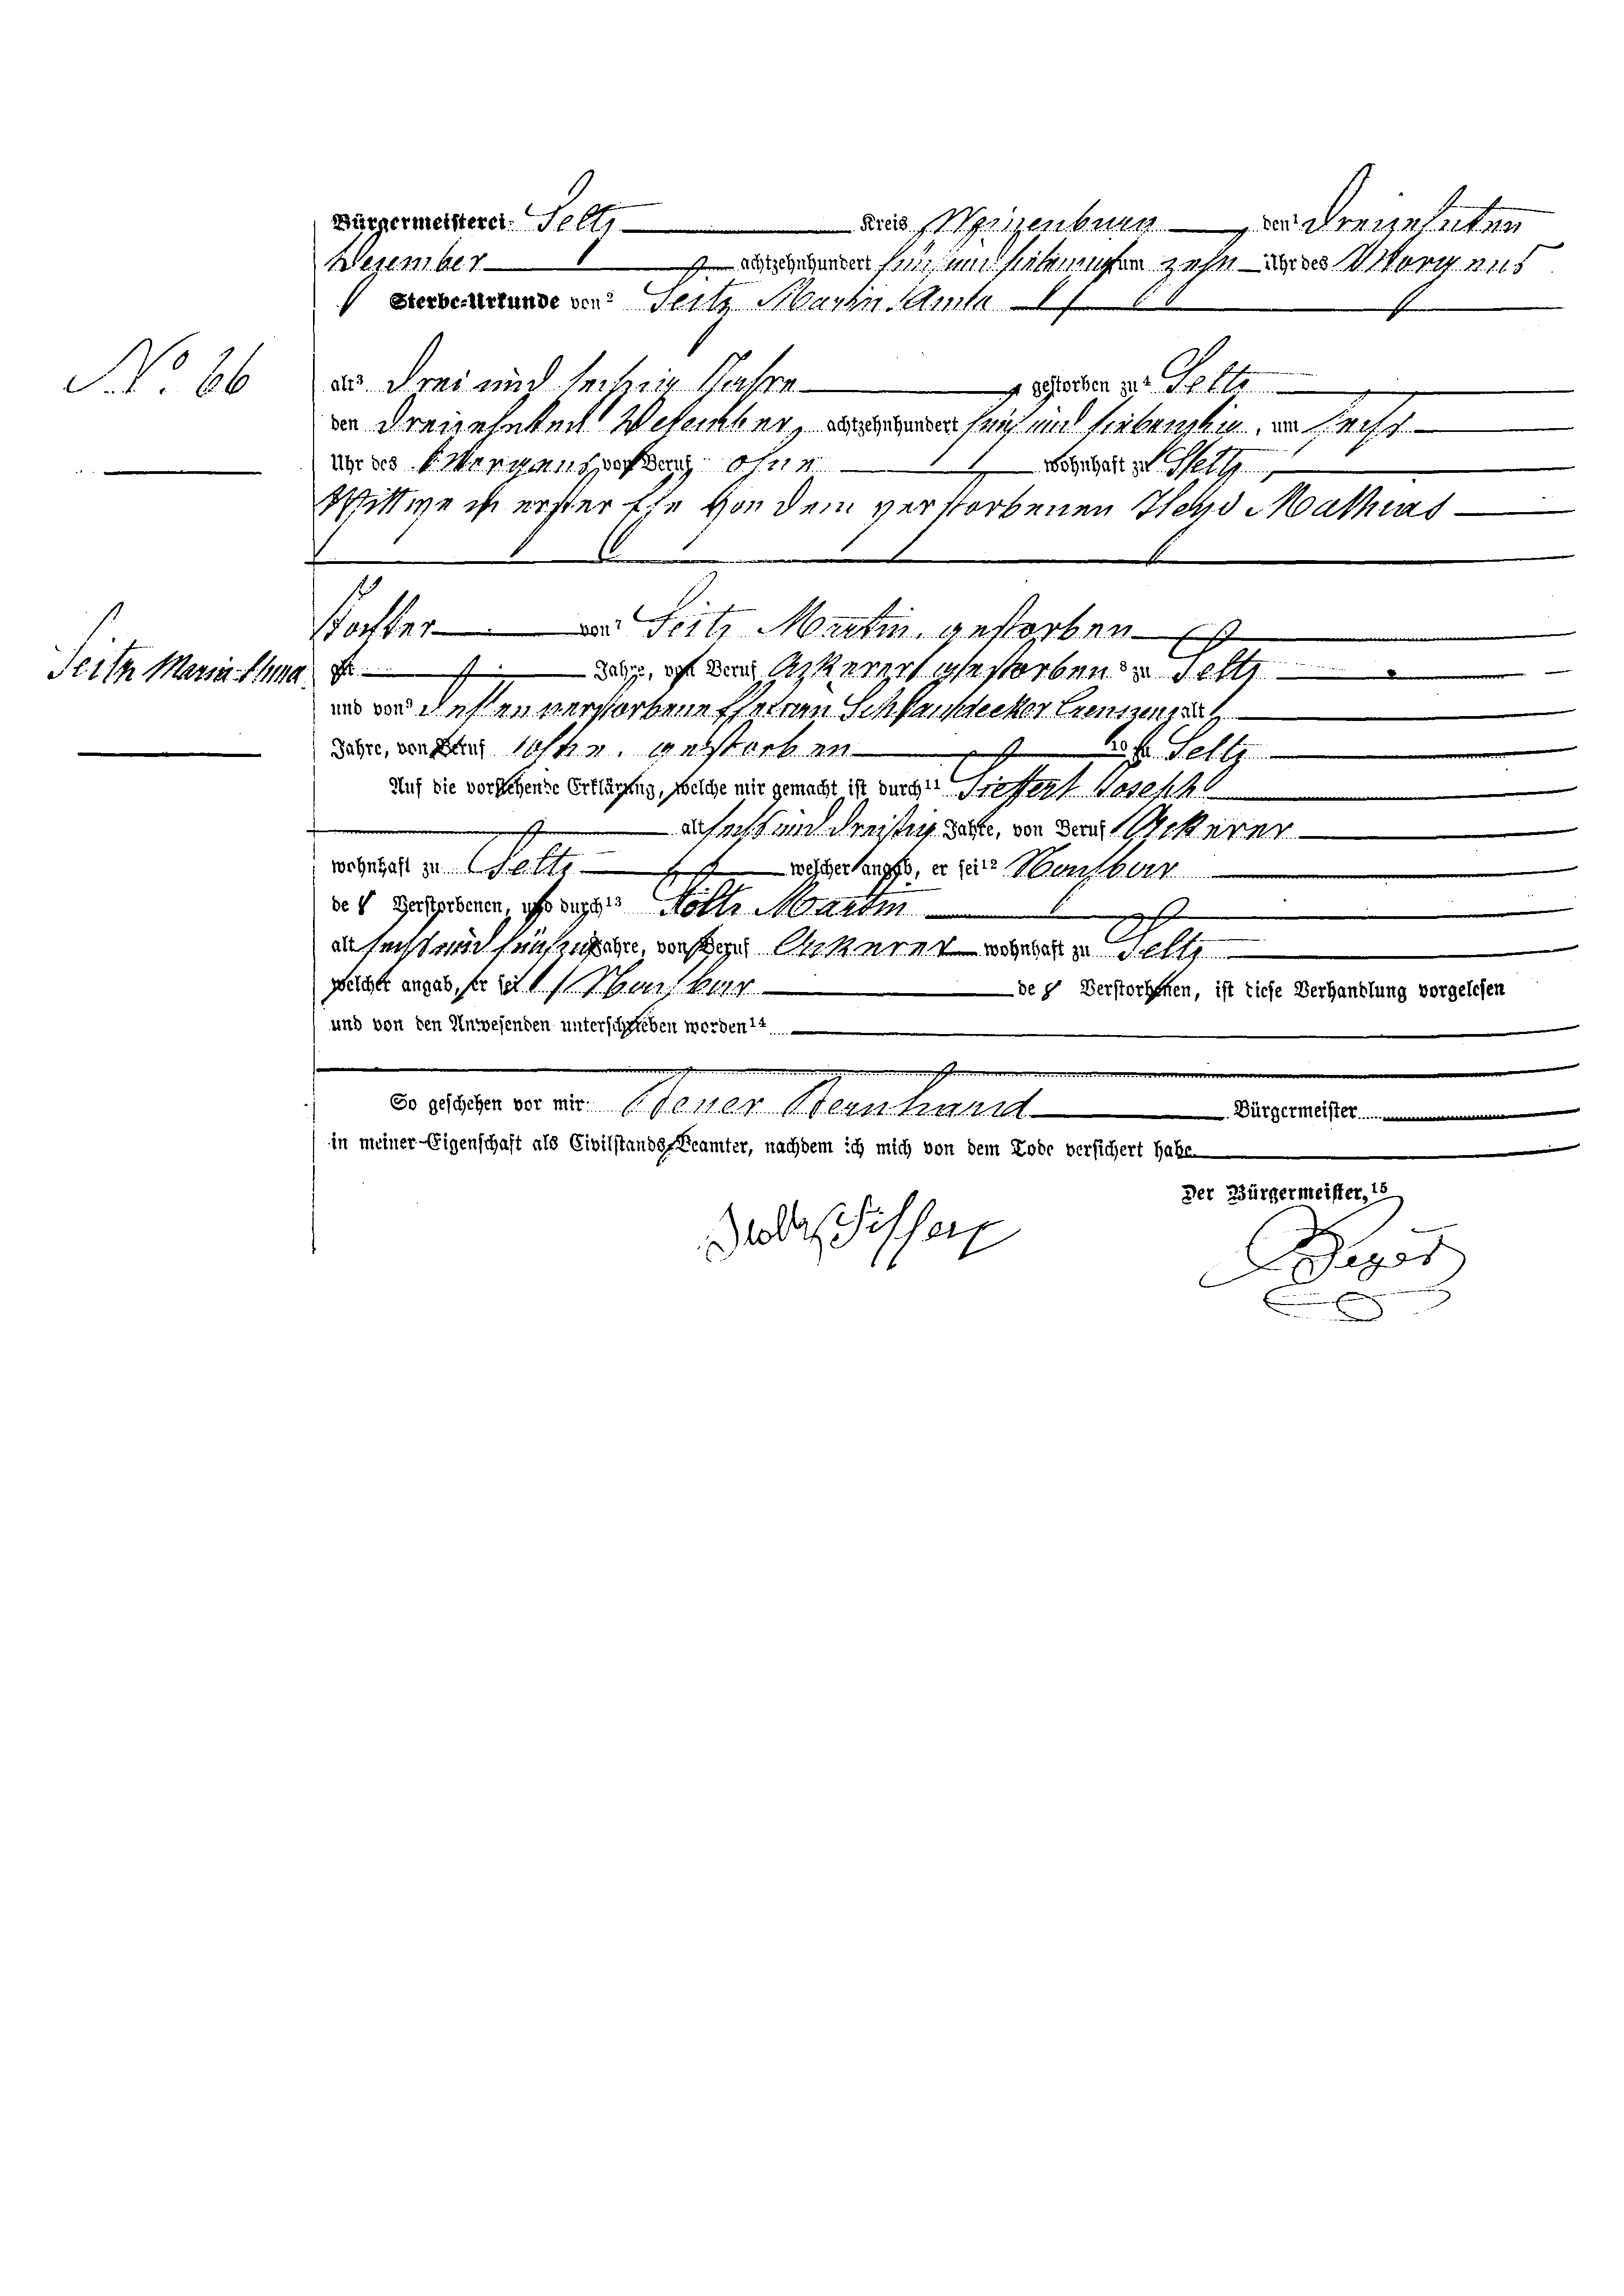 Bürgermeisterei Seltz Kreis Weissenburg den¹ dreizehnten
Dezember achtzehnhundert fünf und siebenzig um zehn Uhr des Morgens
Sterbe-Urkunde von² Seitz Maria Anna
N° 66
alt³ drei und sechzig Jahre gestorben zu⁴ Seltz
den dreizehnten Dezember, achtzehnhundert fünf und siebenzig, um sechs
Uhr des Morgens, von Beruf ohne wohnhaft zu Seltz,
Wittwe in erster Ehe von dem verstorbenen Heyd Mathias
Tochter von⁷ Seitz Martin, gestorben
Seitz Maria Anna
alt Jahre, von Beruf Ackerer gestorben ⁸ zu Seltz
und von⁹ dessen verstorbene Ehefrau alt
Jahre, von Beruf ohne, gestorben ¹⁰ zu Seltz
Auf die vorstehende Erklärung, welche mir gemacht ist durch¹¹ Sieffert Joseph
alt sechs und dreißig Jahre, von Beruf Ackerer
wohnhaft zu Seltz welcher angab, er sei¹² Nachbar
der Verstorbenen, und durch¹³ Stoltz Martin
alt sechs und fünfzig Jahre, von Beruf Ackerer wohnhaft zu Seltz
welcher angab, er sei Nachbar der Verstorbenen, ist diese Verhandlung vorgelesen
und von den Anwesenden unterschrieben worden¹⁴
So geschehen vor mir Beyer Bernhard Bürgermeister
in meiner Eigenschaft als Civilstands-Beamter, nachdem ich mich von dem Tode versichert habe.
Der Bürgermeister,¹⁵
Stoltz Siffert Beyer